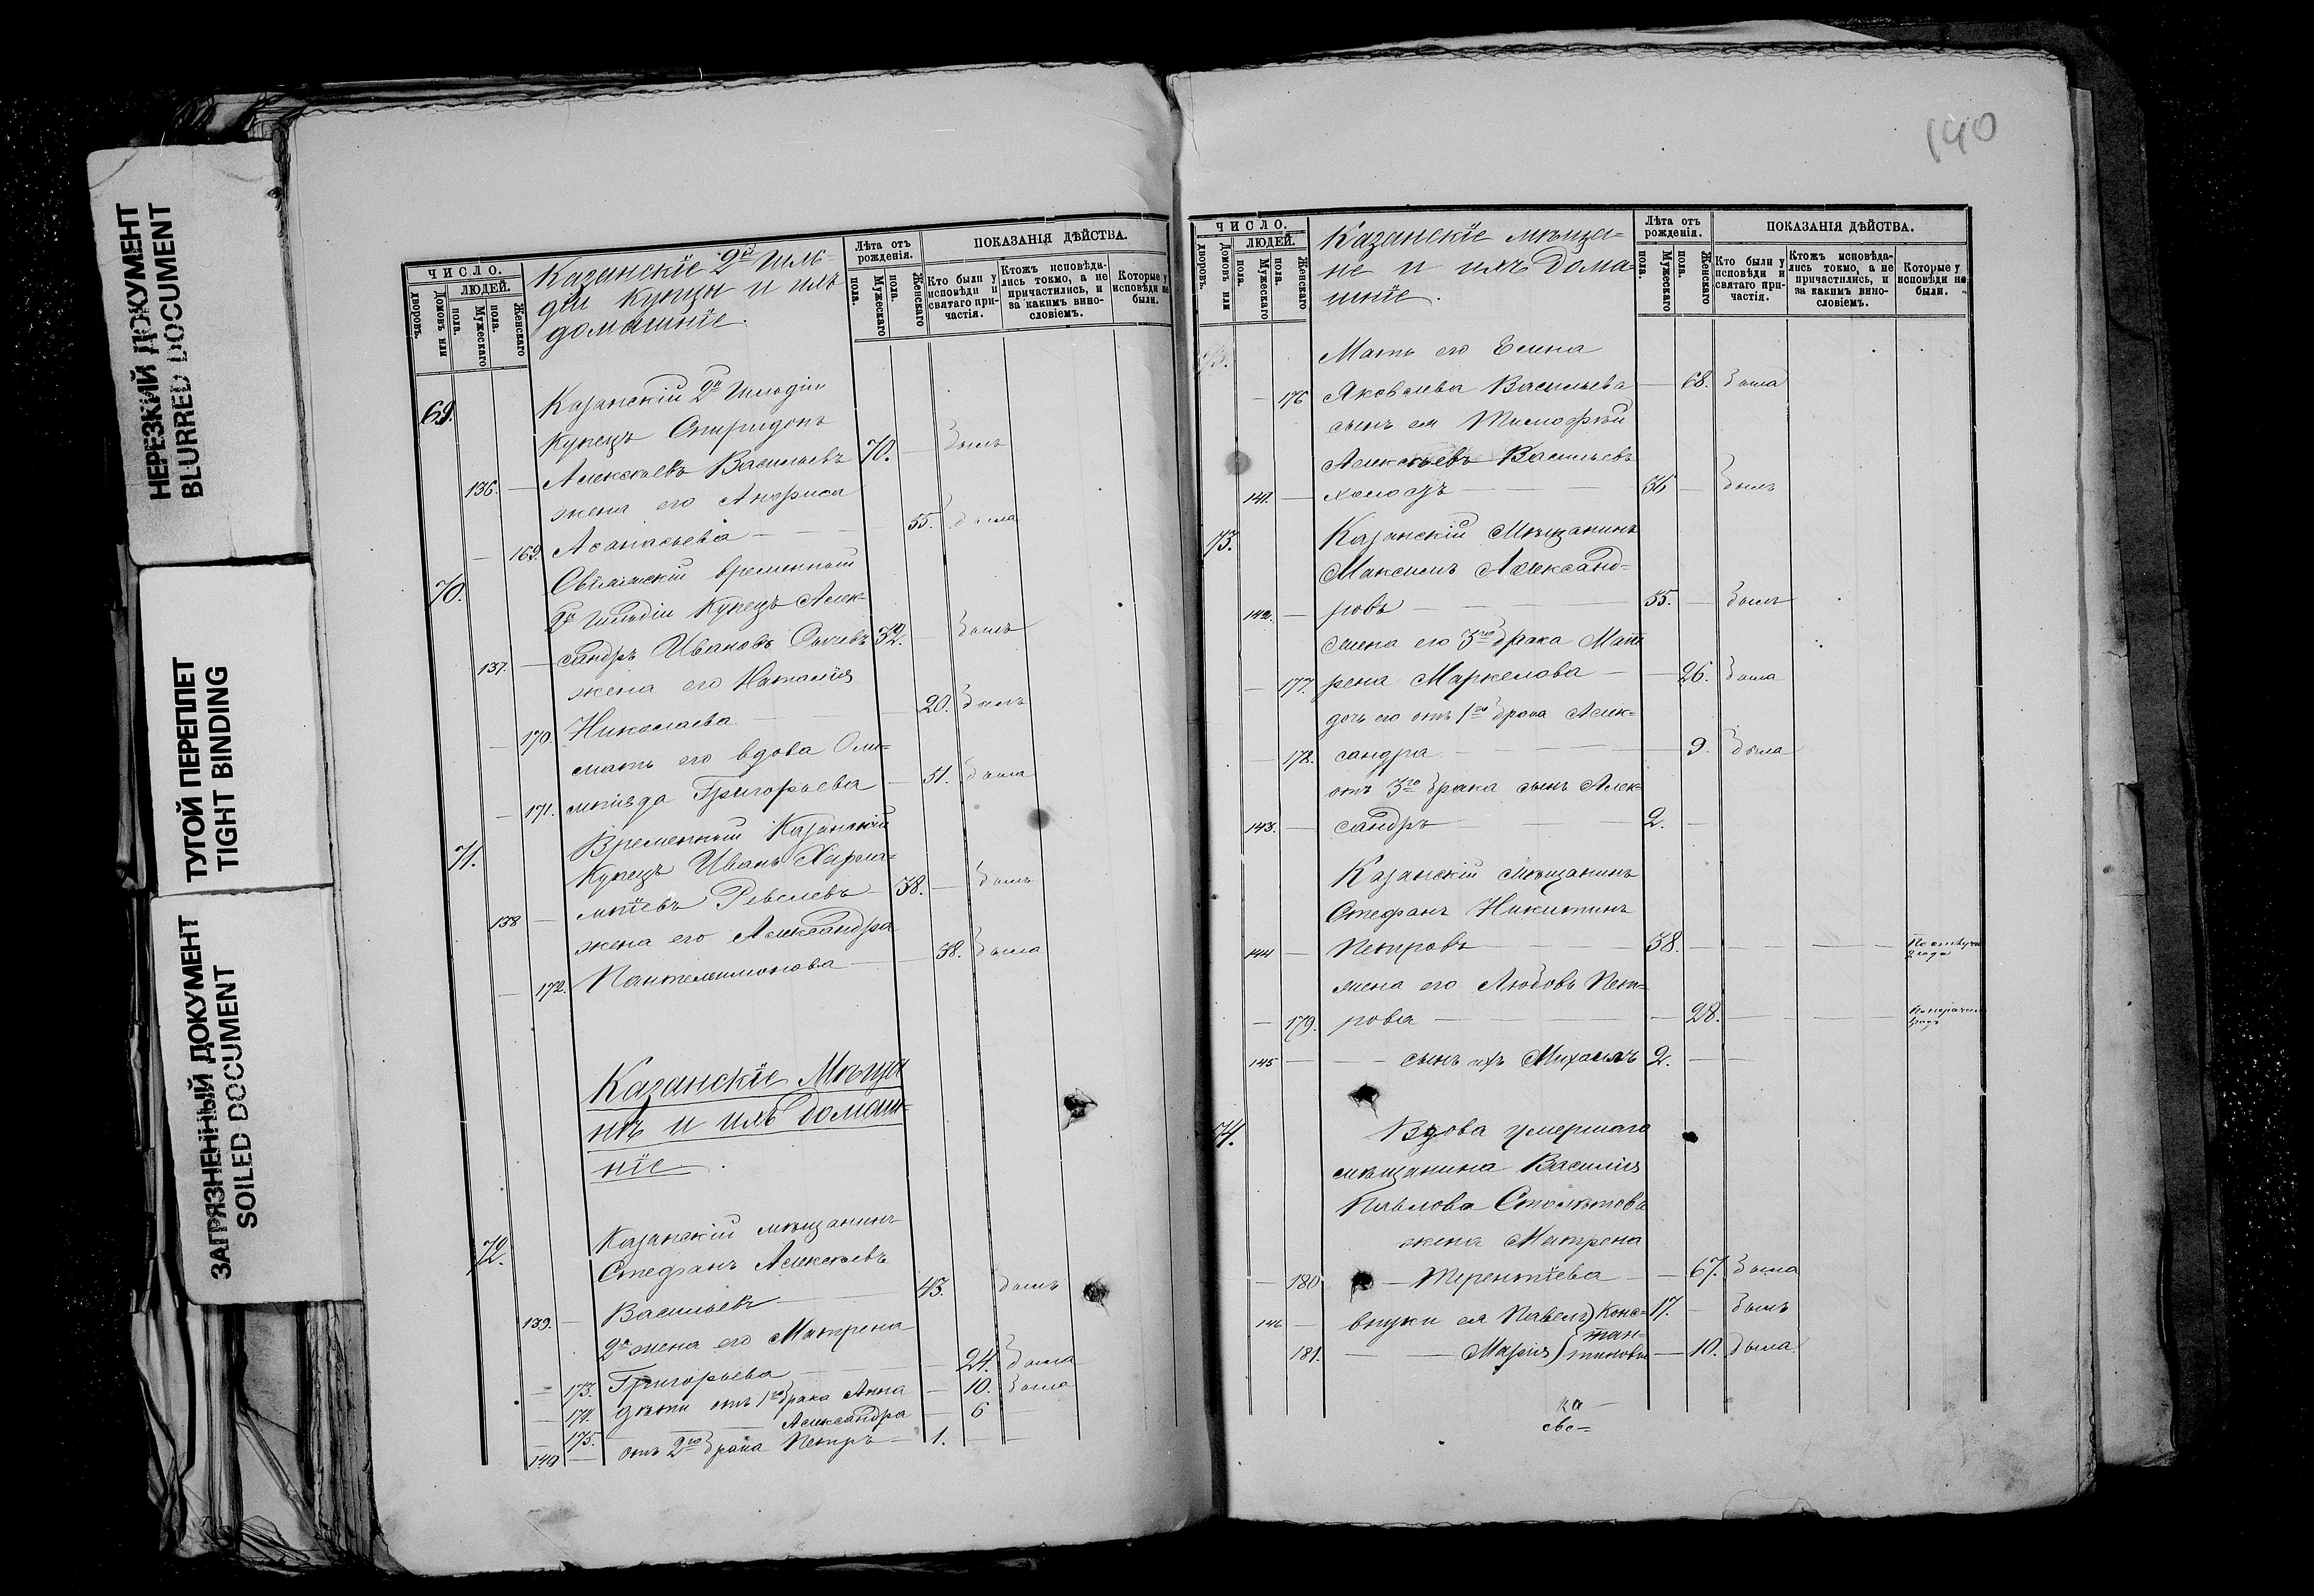 НЕРЕЗКИЙ ДОКУМЕНТ
BLURRED DOCUMENT
ТУГОЙ ПЕРЕПЛЕТ
TIGHT BINDING
ЗАГРЯЗНЕННЫЙ ДОКУМЕНТ
SOILED DOCUMENT
ЧИСЛО.
ЛЮДЕЙ.
Домовъ или дворовъ.
Мужескаго пола.
Женскаго пола.
Казанскіе 2й Гиль-
діи купцы и ихъ
домашніе.
Лѣта отъ рожденія.
Мужескаго пола.
Женскаго пола.
ПОКАЗАНІЯ ДѢЙСТВА.
Кто были у исповѣди и святаго причастія.
Ктожъ исповѣдались токмо, а не причастились, и за какимъ винословіемъ.
Которые у исповѣди не были.
69. Казанскій 2й Гильдіи
купецъ Спиридонъ
136. — Алексѣевъ Васильевъ 70. — былъ
жена его Анфиса
— 169. Аѳанасьева — — 55. была
70. Свіяжскій временный
2й Гильдіи Купецъ Алек-
137. — сандръ Ивановъ 32. — былъ
жена его Наталія
— 170. Николаева — 20. былъ
мать его вдова Оли-
— 171. мпіада Григорьева — 51. была
71. Временный Казанскій
Купецъ Иванъ Харла-
138 — мпіевъ Ревелевъ 38. — былъ
жена его Александра
— 172. Пантелеимонова — 38. была
Казанскіе Мѣща
нѣ и ихъ домаш-
ніе.
72. Казанскій мѣщанинъ
Стефанъ Алексѣевъ
139. — Васильевъ — 43. былъ
2я жена его Матрена
— 173. Григорьева — 24. была
— 174. дѣти отъ 1го брака Анна — 10. была
— 175. Александра — 6 —
140 — отъ 2го брака Петръ — 1. — —
140
ЧИСЛО.
ЛЮДЕЙ.
Домовъ или дворовъ.
Мужескаго пола.
Женскаго пола.
Казанскіе мѣща-
не и ихъ дома-
шніе.
Лѣта отъ рожденія.
Мужескаго пола.
Женскаго пола.
ПОКАЗАНІЯ ДѢЙСТВА.
Кто были у исповѣди и святаго причастія.
Ктожъ исповѣдались токмо, а не причастились, и за какимъ винословіемъ.
Которые у исповѣди не были.
Мать его Елена
— 176 Яковлева Васильева — 68. была
сынъ ея Тимофѣй
Алексѣевъ Васильевъ
141. — холостъ — 36 — былъ
73. Казанскій Мѣщанинъ
Максимъ Александ-
142. — ровъ — 55. — былъ
жена его 3го брака Мат
— 177. рена Маркелова — 26. была
дочь его отъ 1го брака Алек-
— 178. сандра — 9. была
отъ 3го брака сынъ Алек-
143. — сандръ — 2. —
Казанскій мѣщанинъ
Стефанъ Никитинъ
144 — Петровъ — 38. — — —
жена его Любовь Пет-
— 179. рова — — 28. — —
145 — — сынъ ихъ Михаилъ 2. —
74. Вдова умершаго
мѣщанина Василія
Павлова Столѣтова
жена Матрена
— 180 — Терентіева — 67. была
146 — внуки ея Павелъ) Конс- 17. — былъ
тан-
181. — — Марія) тиновы — 10. была.
ка —